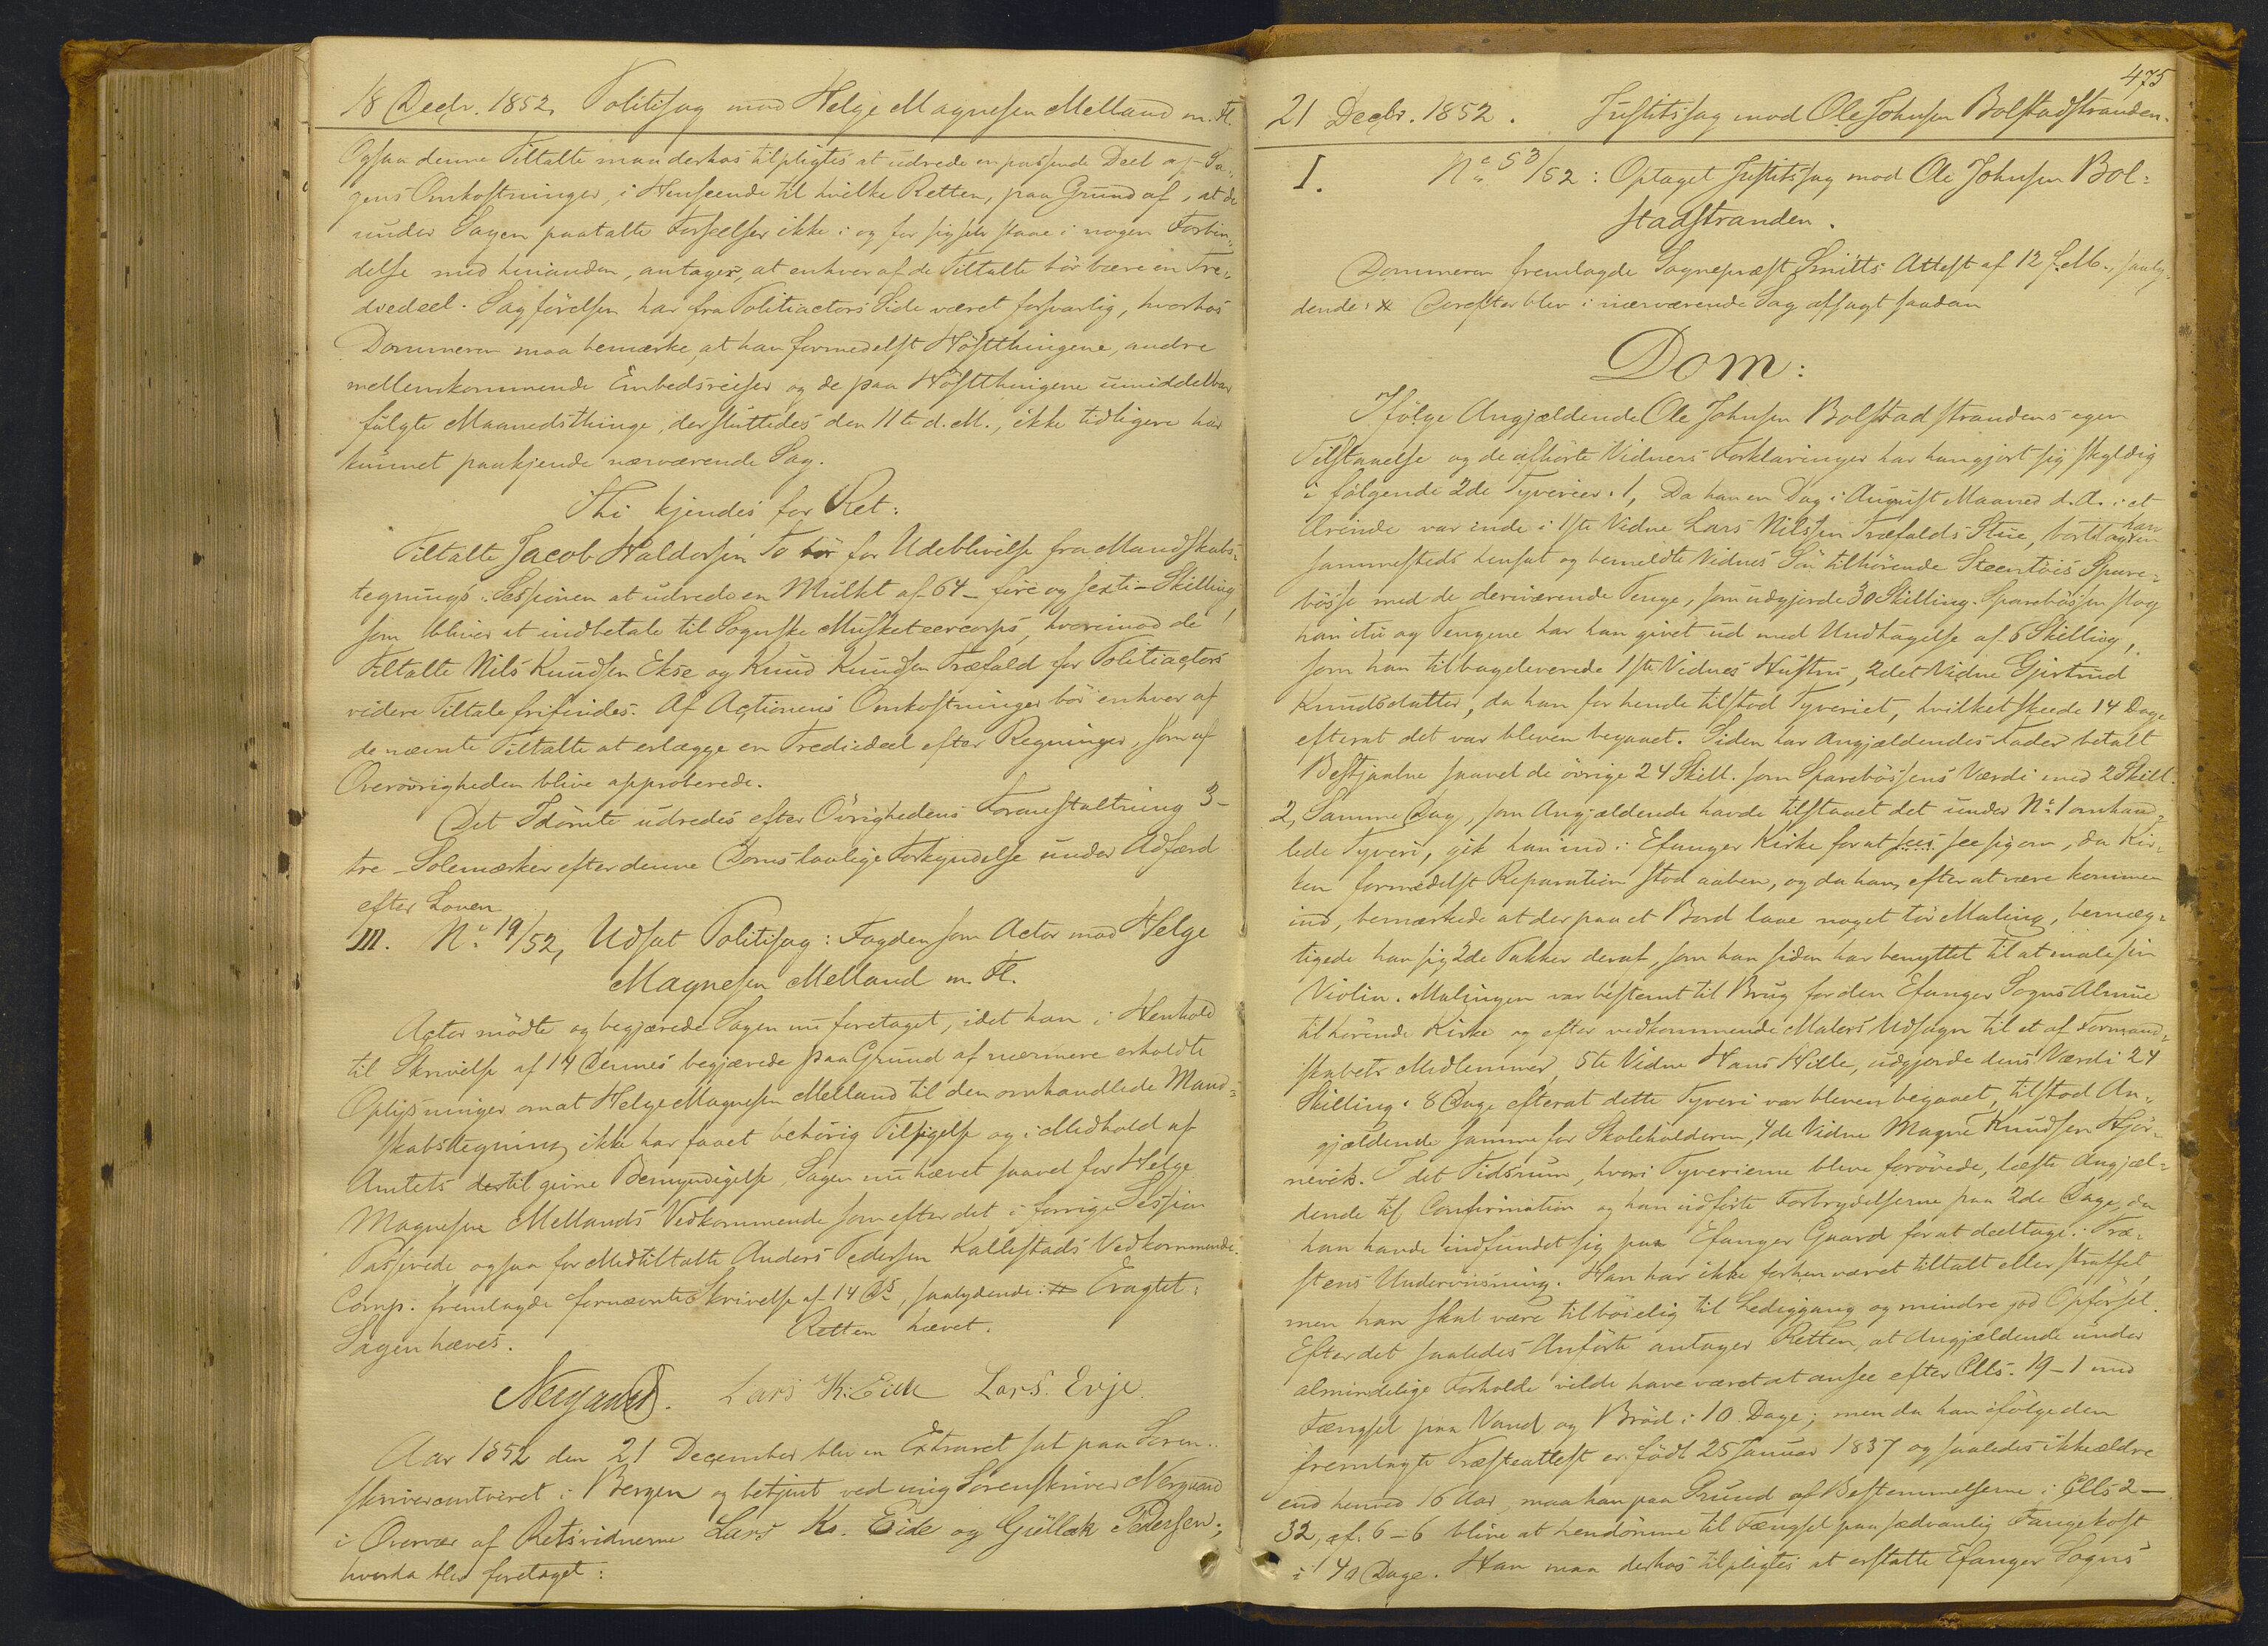 18 Decbr. 1852. Politisag mod Helge Magnesen Melland m. Fl.
Ogsaa denne Tiltalte maa derhos tilpligtes at udrede en passende Deel af Sa-
gens Omkostninger, i Henseende til hvilke Retten, paa Grund af, at de
under Sagen paatalte Forseelser ikke i og for sig selv staae i nogen Forbin-
delse med hinanden, antager, at enhver af de Tiltalte bör bære en Tre-
diedeel. Sagförelsen har fra Politiactors Side været forsvarlig, hvorhos
Dommeren maa bemærke, at han formedelst Höstthingene, andre
mellemkommende Embedsreiser og de paa Höstthingene umiddelbar
fulgte Maanedsthinge, der sluttedes den 11te d. M., ikke tidligere har
kunnet paakjende nærværende Sag.
Thi kjendes for Ret:
Tiltalte Jacob Haldorsen To bör for Udeblivelse fra Mandskabs-
tegnings-Sessionen at udrede en Mulkt af 64 - fire og sexti - Skilling,
som bliver at indbetale til Sognske Musketeercorps, hvorimod de
Tiltalte Nils Knudsen Ekse og Knud Knudsen Træfald for Politiactors
videre Tiltale frifindes. Af Actionens Omkostninger bör enhver af
de nævnte Tiltalte at erlægge en Trediedeel efter Regninger, som af
Overövrigheden blive approberede.
Det Idömte udredes efter Övrighedens Foranstaltning 3 -
tre - Solemærker efter denne Doms lovlige Forkyndelse under Adfærd
efter Loven
III. No. 19/52, Udsat Politisag: Fogden som Actor mod Helge
Magnesen Melland m. Fl.
Actor mödte og begjærede Sagen nu foretaget, idet han i Henhold
til Skrivelse af 14 Dennes begjærede paa Grund af nærmere erholdte
Oplysninger om at Helge Magnesen Melland til den omhandlede Mand-
skabstegning ikke har faaet behörig Tilsigelse og i Medhold af
Amtets dertil givne Bemyndigelse, Sagen nu hævet saavel for Helge
Magnesen Mellands Vedkommende som efter det i forrige Session
Passerede ogsaa for Medtiltalte Anders Pedersen Kallestads Vedkommende.
Comp. fremlagde fornævnte Skrivelse af 14 Ds, saalydende: Eragtet:
Sagen hæves. Retten hævet.
Nergaard. Lars K. Eide Lars. Evje.
Aar 1852 den 21 December blev en Extraret sat paa Soren-
skrivercontoiret i Bergen og betjent ved mig Sorenskriver Nergaard
i Overvær af Retsvidnerne Lars Ks. Eide og Gullak Pedersen;
hvorda blev foretaget:
475
21 Decbr. 1852. Justitssag mod Ole Johnsen Bolstadstranden.
I. No. 53/52: Optaget Justitssag mod Ole Johnsen Bol-
stadstranden.
Dommeren fremlagde Sogneprest Smitts Attest af 12 f. M., saaly-
dende: Derefter blev i nærværende Sag afsagt saadan
Dom:
Ifölge Angjældende Ole Johnsen Bolstadstrandens egen
Tilstaaelse og de afhörte Vidners Forklaringer har han gjort sig skyldig
i fölgende 2de Tyverier. 1, Da han en Dag i August Maaned d. A. i et
Ærinde var inde i 1ste Vidne Lars Nilssen Træfalds Stue, borttog han en
sammesteds hensat og bemeldte Vidnes Sön tilhörende Steentöis Spare-
bösse med de derværende Penge, som udgjorde 30 Skilling. Sparebössen slog
han itu og Pengene har han givet ud med Undtagelse af 6 Skilling,
som han tilbageleverede 1ste Vidnes Hustru, 2det Vidne Gjertrud
Knudsdatter, da han for hende tilstod Tyveriet, hvilket skeede 14 Dage
efterat det var bleven begaaet. Siden har Angjældendes Fader betalt
Bestjaalne saavel de övrige 24 Skill. som Sparebössens Værdi med 2 Skill.
2, Samme Dag, som Angjældende havde tilstaaet det under No. 1 omhand-
lede Tyveri, gik han ind i Efanger Kirke for at sees see sig om, da Kir-
ken formedelst Reparation stod aaben, og da han, efter at være kommen
ind, bemærkede at der paa et Bord laae noget tör Maling, bemæg-
tigede han sig 2de Pakker deraf, som han siden har benyttet til at male sin
Violin. Malingen var bestemt til Brug for den Efanger Sogns Almue
tilhörende Kirke og efter vedkommende Malers Udsagn til et af Formand-
skabets Medlemmer, 5te Vidne Hans Hille, udgjorde dens Værdi 24
Skilling. 8 Dage efterat dette Tyveri var bleven begaaet, tilstod An-
gjældende samme for Skoleholderen, 4de Vidne Magne Knudsen Hjör-
nevik. I det Tidsrum, hvori Tyverierne bleve forövede, læste Angjæl-
dende til Confirmation og han udförte Forbrydelserne paa 2de Dage, da
han havde indfundet sig paa Efanger Gaard for at deeltage i Præ-
stens Underviisning. Han har ikke forhen været tiltalt eller straffet,
men han skal være tilböielig til Lediggang og mindre god Opförsel.
Efter det saaledes Anförte antager Retten, at Angjældende under
almindelige Forholde vilde have været at ansee efter Clls. 19-1 med
Fængsel paa Vand og Bröd i 10 Dage; men da han ifölge den
fremlagte Præsteattest er födt 25 Januar 1837 og saaledes ikke ældre
end henved 16 Aar, maa han paa Grund af Bestemmelserne i Clls 2 -
32, cf. 6-6 blive at hendömme til Fængsel paa sædvanlig Fangekost
i 40 Dage. Han maa derhos tilpligtes at erstatte Efanger Sogns